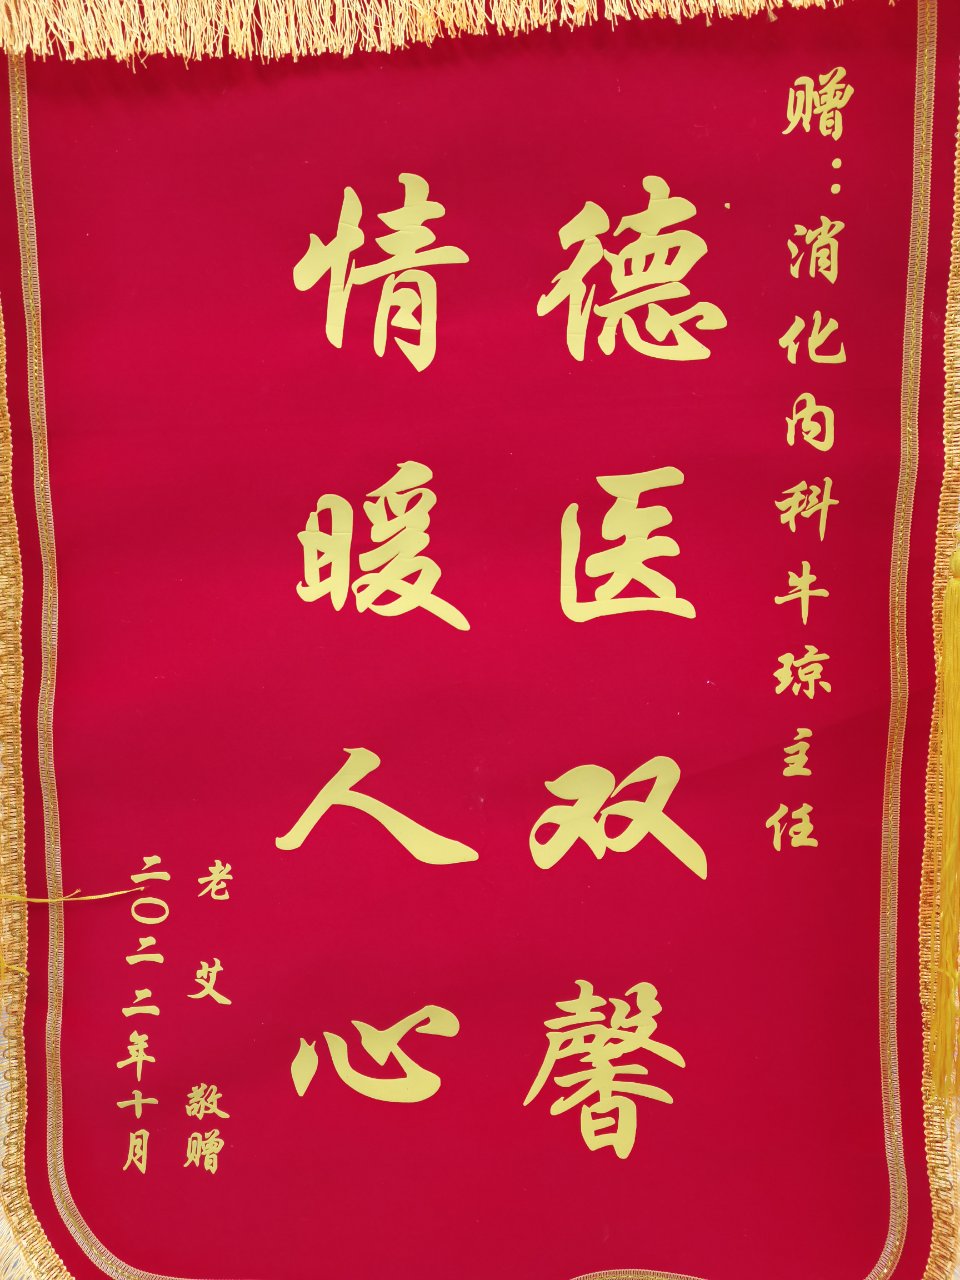 赠：消化内科牛琼主任
德医双馨
情暖人心
老艾敬赠
二〇二二年十月